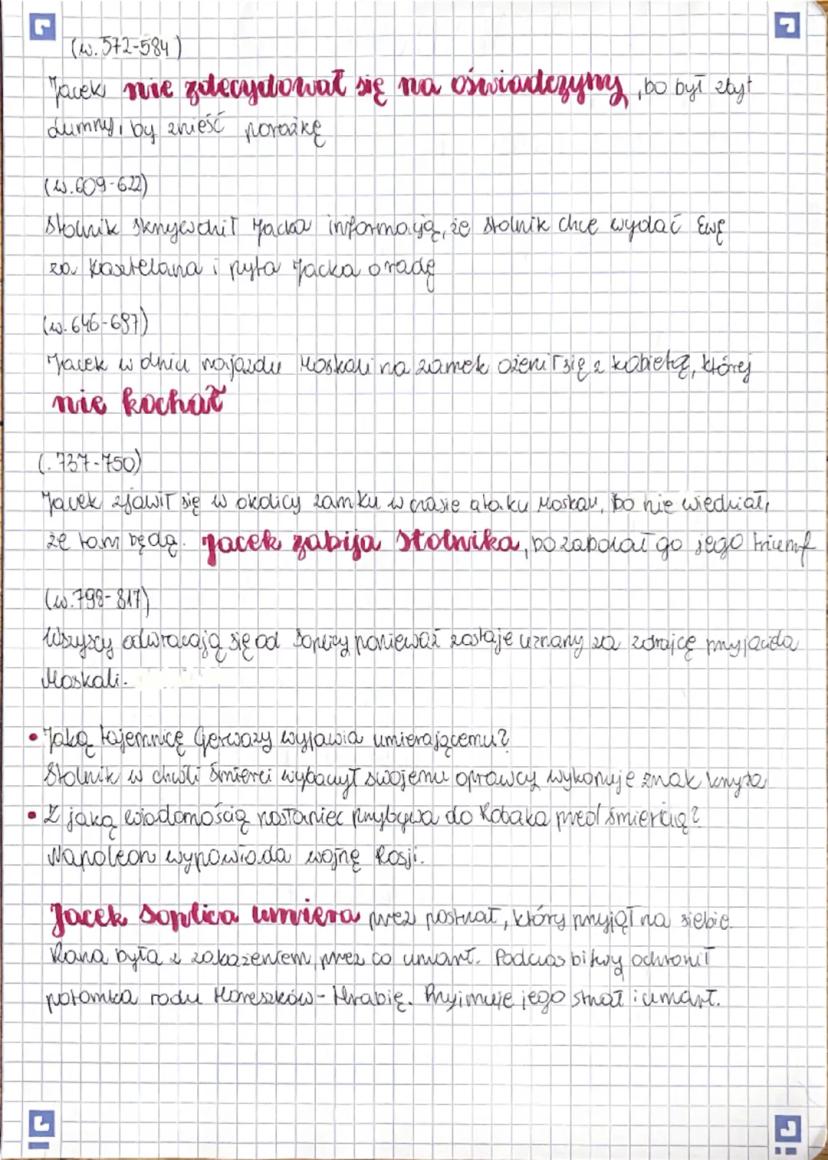 (w. 572-584)
Jacek nie zdecydował się na oświadczyny, bo był zbyt
dumny, by znieść porażkę
(w. 609-622)
Stolnik skrzywdził Jacka informacją, że stolnik chce wydać Ewę
za kasztelana i pyta Jacka o radę
(w. 646-687)
Jacek w dniu najazdu Moskali na zamek ożenił się z kobietą, której
nie kochał
(. 737-750)
Jacek zjawił się w okolicy zamku w czasie ataku Moskali, bo nie wiedział,
że tam będą. Jacek zabija Stolnika, bo zabolał go jego triumf
(w. 798-817)
Wszyscy odwracają się od Soplicy ponieważ zostaje uznany za zdrajcę przyjaciela
Moskali.
• Jaką tajemnicę Gerwazy wyjawia umierającemu?
Stolnik w chwili śmierci wybaczył swojemu oprawcy wykonuje znak krzyża
• Z jaką wiadomością posłaniec przybywa do Robaka przed śmiercią?
Napoleon wypowiada wojnę Rosji.
Jacek Soplica umiera przez postrzał, który przyjął na siebie.
Rana była z zakażeniem, przez co umarł. Podczas bitwy ochronił
potomka rodu Horeszków - Hrabię. Przyjmuje jego strzał i umarł.